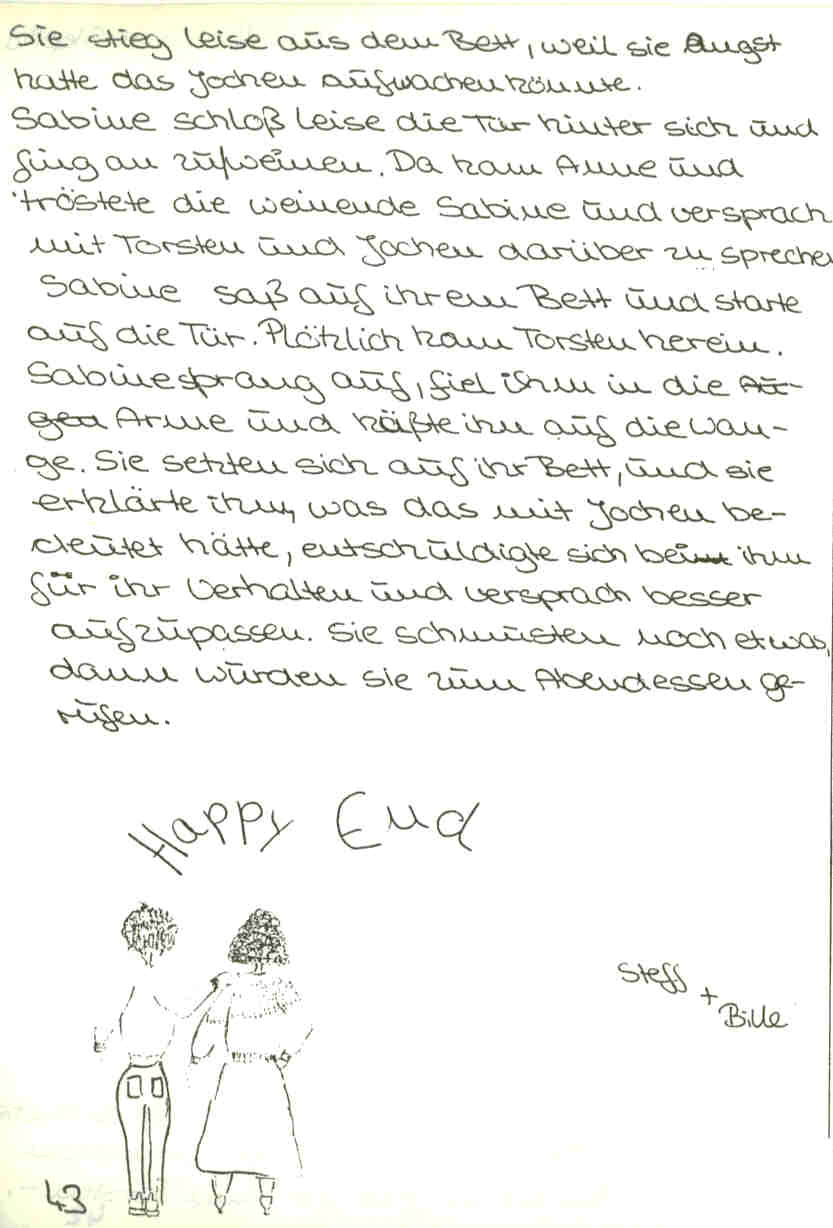 Sie stieg leise aus dem Bett, weil sie Angst
hatte das Jochen aufwachen könnte.
Sabine schloß leise die Tür hinter sich und
fing an zu weinen. Da kam Anne und
tröstete die weinende Sabine und versprach
mit Torsten und Jochen darüber zu sprechen
Sabine saß auf ihrem Bett und starte
auf die Tür. Plötzlich kam Torsten herein.
Sabine sprang auf, fiel ihm in die Au-
gen Arme und küßte ihn auf die Wan-
ge. Sie setzten sich auf ihr Bett, und sie
erklärte ihm, was das mit Jochen be-
deutet hätte, entschuldigte sich bei ihm
für ihr Verhalten und versprach besser
aufzupassen. Sie schmusten noch etwas,
dann wurden sie zum Abendessen ge-
rufen.
Happy End
Steff
+
Bille
43